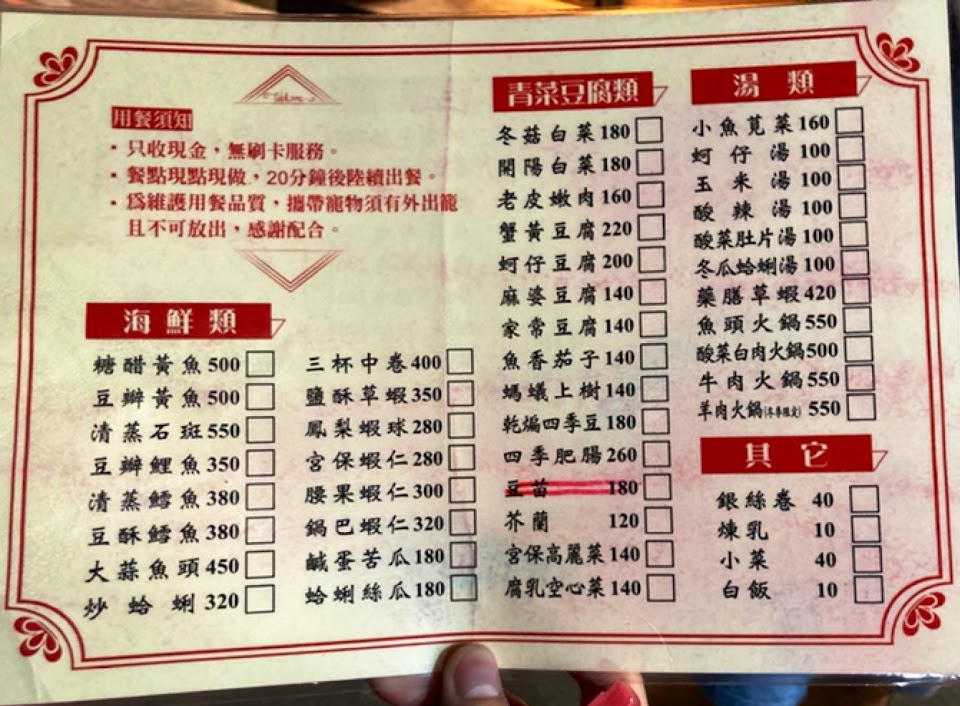 用餐須知
・只收現金，無刷卡服務。
・餐點現點現做，20分鐘後陸續出餐。
・為維護用餐品質，攜帶寵物須有外出籠
且不可放出，感謝配合。
海鮮類
糖醋黃魚 500
豆瓣黃魚 500
清蒸石斑 550
豆瓣鯉魚 350
清蒸鱈魚 380
豆酥鱈魚 380
大蒜魚頭 450
炒蛤蜊 320
三杯中卷 400
鹽酥草蝦 350
鳳梨蝦球 280
宮保蝦仁 280
腰果蝦仁 300
鍋巴蝦仁 320
鹹蛋苦瓜 180
蛤蜊絲瓜 180
青菜豆腐類
冬菇白菜 180
開陽白菜 180
老皮嫩肉 160
蟹黃豆腐 220
蚵仔豆腐 200
麻婆豆腐 140
家常豆腐 140
魚香茄子 140
螞蟻上樹 140
乾煸四季豆 180
四季肥腸 260
豆苗 180
芥蘭 120
宮保高麗菜 140
腐乳空心菜 140
湯類
小魚莧菜 160
蚵仔湯 100
玉米湯 100
酸辣湯 100
酸菜肚片湯 100
冬瓜蛤蜊湯 100
藥膳草蝦 420
魚頭火鍋 550
酸菜白肉火鍋 500
牛肉火鍋 550
羊肉火鍋(冬季限定) 550
其它
銀絲卷 40
煉乳 10
小菜 40
白飯 10